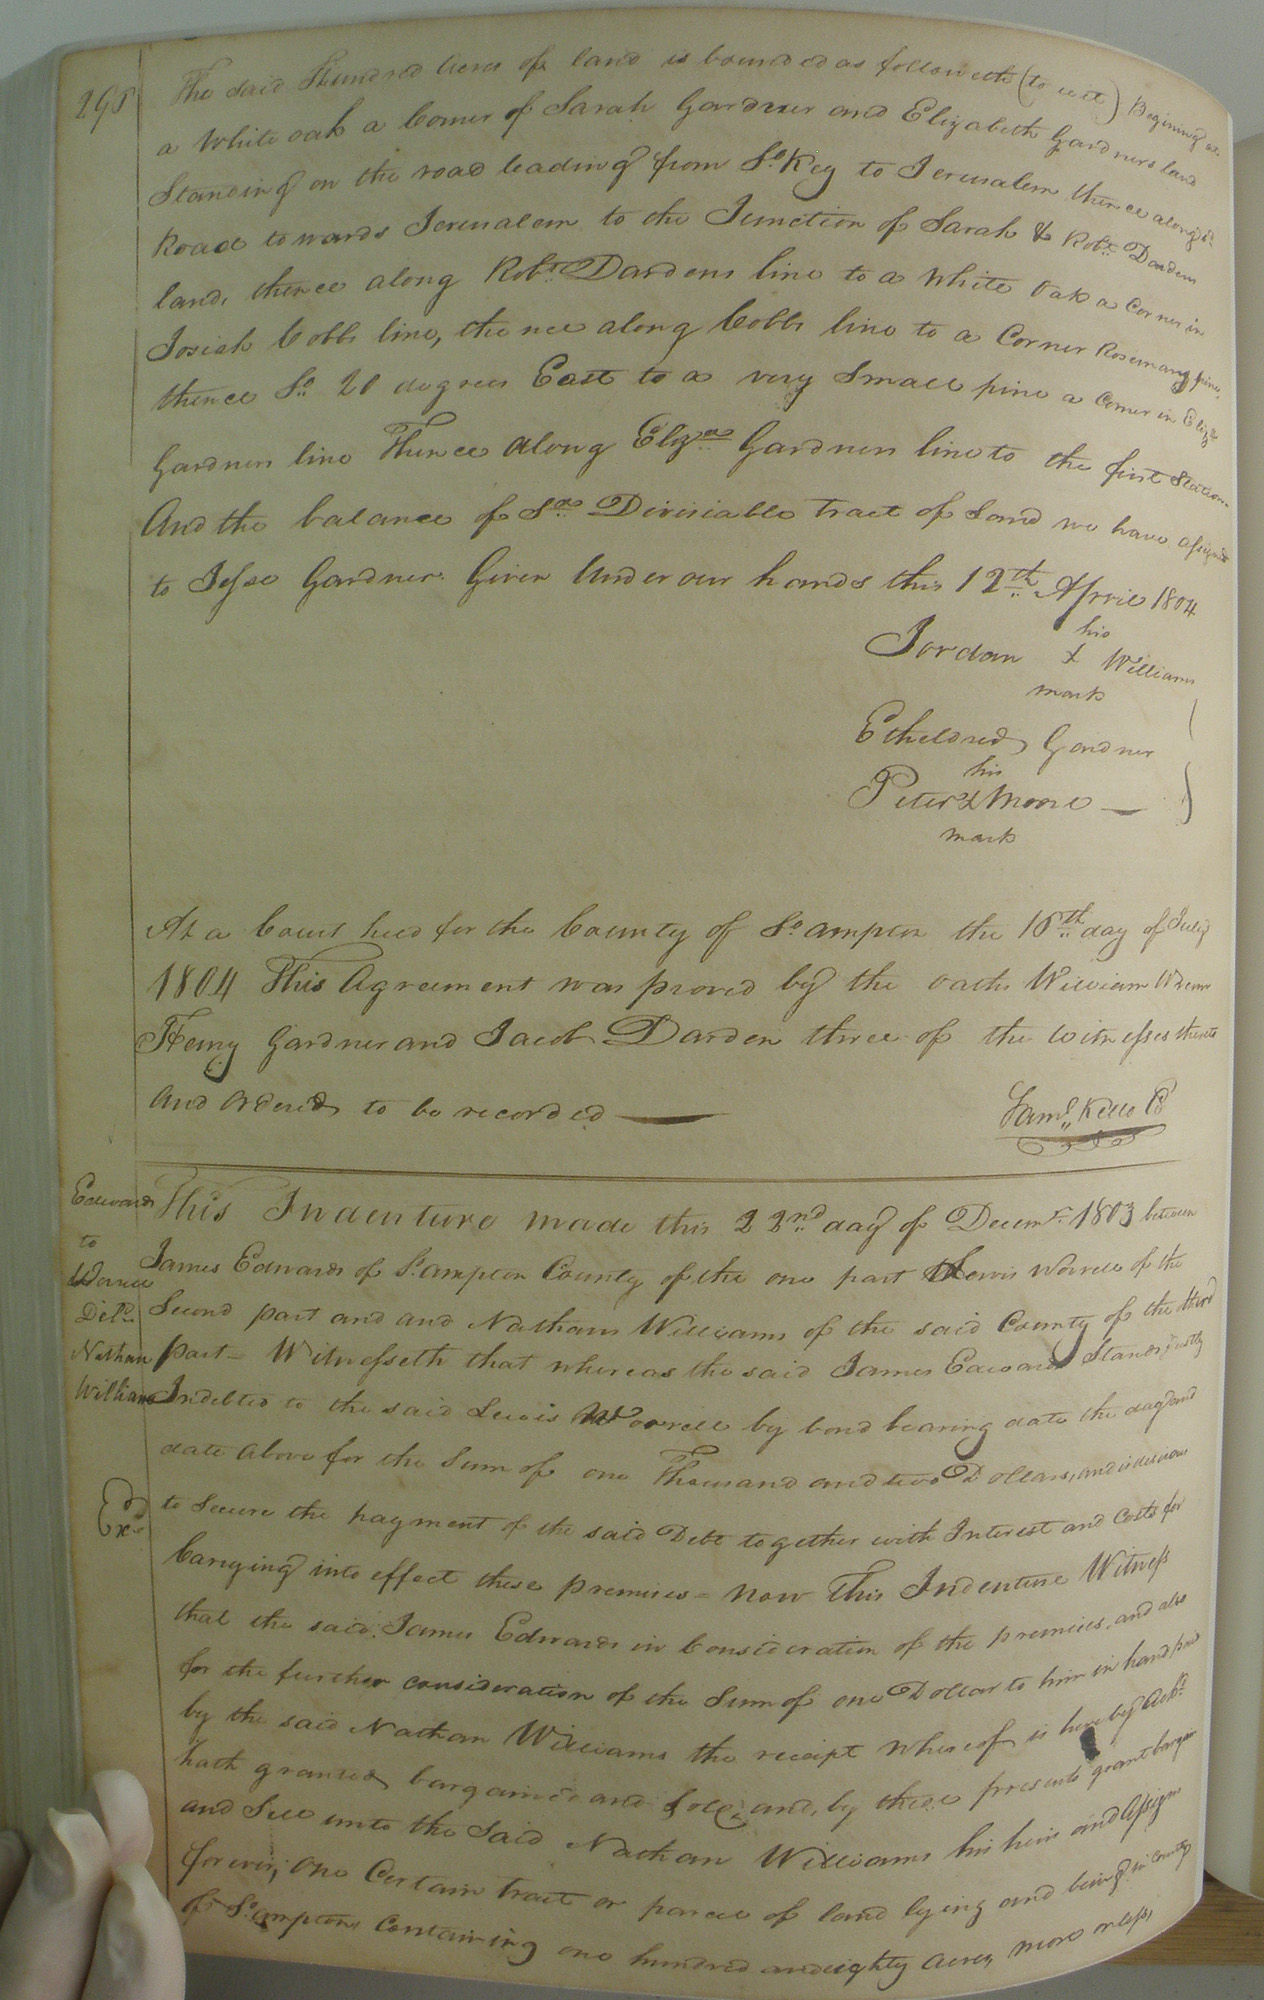 298
The said Hundred Acres of land is bounded as followeth (to wit) Begining at
a White oak a Corner of Sarah Gardner and Elizabeth Gardners land
Standing on the road leading from So. Key to Jerusalem thence along sd.
Road towards Jerusalem to the Junction of Sarah & Robt. Dardens
land, thence along Robt. Dardens line to a White Oak a Corner in
Josiah Cobbs line, thence along Cobbs line to a Corner Rosemary pine,
thence So. 20 degrees East to a very Small pine a Corner in Eliza.
Gardners line Thence along Eliza. Gardners line to the first Station
And the balance of Sd. Divisiable tract of Land we have assigned
to Jesse Gardner. Given Under our hands this 12th April 1804
his
Jordan X Williams
mark
Etheldred Gardner
his
Peter X Moore
mark
At a Court held for the County of So.ampton the 16th day of July
1804 This Agreement was proved by the oaths William
Henry Gardner and Jacob Darden three of the witnesses thereto
And Ordered to be recorded
Saml. Kello Cl
Edwards
to
Worrell
Deld.
Nathan
Williams
Exd.
This Indenture made this 22nd day of Decemr. 1803 between
James Edwards of S.ampton County of the one part Lewis Worrell of the
Second part and and Nathan Williams of the said County of the third
part = Witnesseth that whereas the said James Edwards Stands justly
Indebted to the said Lewis Worrell by bond bearing date the day and
date above for the Sum of one Thousand and two Dollars, and is desirous
to Secure the payment of the said Debt together with Interest and Costs for
Carrying into effect these premises = Now This Indenture Witness
that the said James Edwards in Consideration of the premises, and also
for the further consideration of the Sum of one Dollar to him in hand paid
by the said Nathan Williams the receipt whereof is hereby Ackd.
hath granted bargained and Sold, and, by these presents grant bargain
and Sell unto the Said Nathan Williams his heirs and Assigns
forever; One Certain tract or parcel of land lying and being in County
of S.ampton Containing one hundred and eighty Acres, more or less,